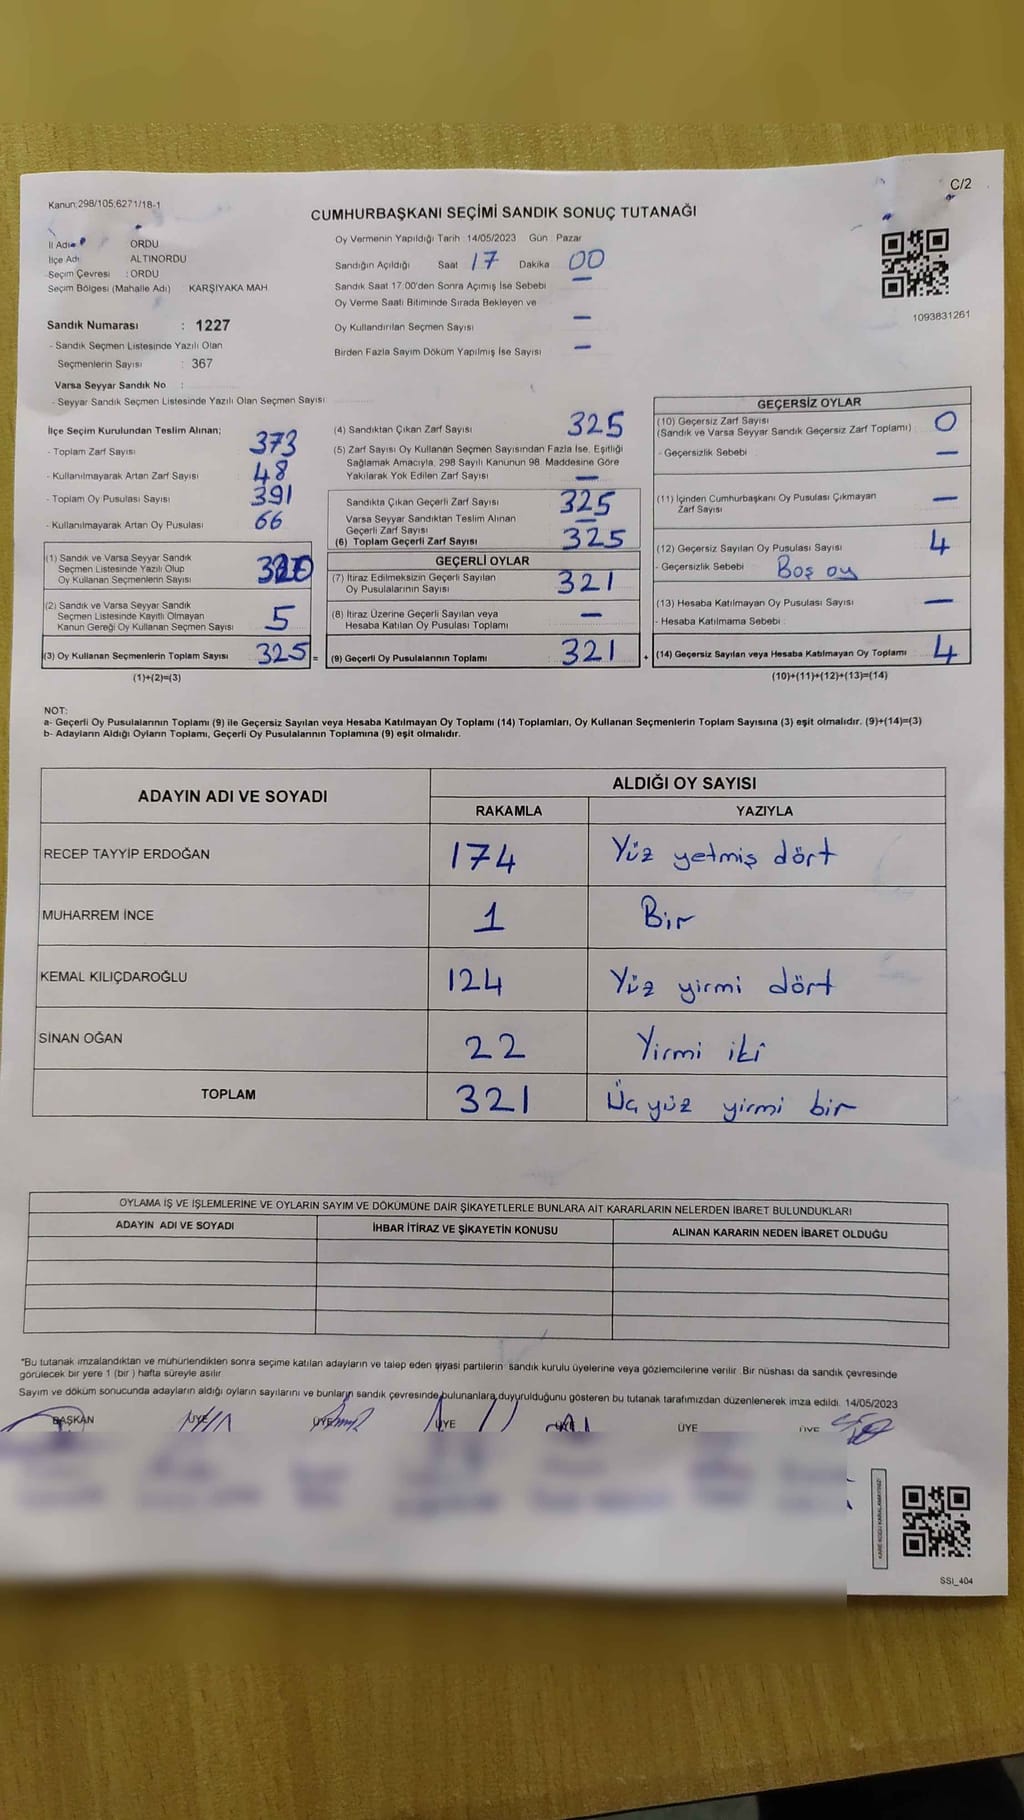 Kanun:298/105,6271/18-1
C/2
CUMHURBAŞKANI SEÇİMİ SANDIK SONUÇ TUTANAĞI
İl Adı ORDU
İlçe Adı ALTINORDU
Seçim Çevresi : ORDU
Seçim Bölgesi (Mahalle Adı) KARŞIYAKA MAH
Sandık Numarası : 1227
- Sandık Seçmen Listesinde Yazılı Olan
Seçmenlerin Sayısı : 367
Varsa Seyyar Sandık No :
- Seyyar Sandık Seçmen Listesinde Yazılı Olan Seçmen Sayısı
Oy Vermenin Yapıldığı Tarih :14/05/2023 Gün : Pazar
Sandığın Açıldığı Saat 17 Dakika 00
Sandık Saat 17:00'den Sonra Açımış İse Sebebi —
Oy Verme Saati Bitiminde Sırada Bekleyen ve
Oy Kullandırılan Seçmen Sayısı —
Birden Fazla Sayım Döküm Yapılmış İse Sayısı —
1093831261
İlçe Seçim Kurulundan Teslim Alınan;
- Toplam Zarf Sayısı 373
- Kullanılmayarak Artan Zarf Sayısı 48
- Toplam Oy Pusulası Sayısı 391
- Kullanılmayarak Artan Oy Pusulası 66
(1) Sandık ve Varsa Seyyar Sandık
Seçmen Listesinde Yazılı Olup
Oy Kullanan Seçmenlerin Sayısı 320
(2) Sandık ve Varsa Seyyar Sandık
Seçmen Listesinde Kayıtlı Olmayan
Kanun Gereği Oy Kullanan Seçmen Sayısı 5
(3) Oy Kullanan Seçmenlerin Toplam Sayısı 325 =
(1)+(2)=(3)
(4) Sandıktan Çıkan Zarf Sayısı 325
(5) Zarf Sayısı Oy Kullanan Seçmen Sayısından Fazla İse, Eşitliği
Sağlamak Amacıyla, 298 Sayılı Kanunun 98. Maddesine Göre
Yakılarak Yok Edilen Zarf Sayısı —
Sandıkta Çıkan Geçerli Zarf Sayısı 325
Varsa Seyyar Sandıktan Teslim Alınan
Geçerli Zarf Sayısı —
(6) Toplam Geçerli Zarf Sayısı 325
GEÇERLİ OYLAR
(7) İtiraz Edilmeksizin Geçerli Sayılan
Oy Pusulalarının Sayısı 321
(8) İtiraz Üzerine Geçerli Sayılan veya
Hesaba Katılan Oy Pusulası Toplamı —
(9) Geçerli Oy Pusulalarının Toplamı 321 +
GEÇERSİZ OYLAR
(10) Geçersiz Zarf Sayısı
(Sandık ve Varsa Seyyar Sandık Geçersiz Zarf Toplamı) 0
- Geçersizlik Sebebi —
(11) İçinden Cumhurbaşkanı Oy Pusulası Çıkmayan
Zarf Sayısı —
(12) Geçersiz Sayılan Oy Pusulası Sayısı 4
- Geçersizlik Sebebi Boş oy
(13) Hesaba Katılmayan Oy Pusulası Sayısı —
- Hesaba Katılmama Sebebi :
(14) Geçersiz Sayılan veya Hesaba Katılmayan Oy Toplamı 4
(10)+(11)+(12)+(13)=(14)
NOT:
a- Geçerli Oy Pusulalarının Toplamı (9) ile Geçersiz Sayılan veya Hesaba Katılmayan Oy Toplamı (14) Toplamları, Oy Kullanan Seçmenlerin Toplam Sayısına (3) eşit olmalıdır. (9)+(14)=(3)
b- Adayların Aldığı Oyların Toplamı, Geçerli Oy Pusulalarının Toplamına (9) eşit olmalıdır.
ADAYIN ADI VE SOYADI
ALDIĞI OY SAYISI
RAKAMLA YAZIYLA
RECEP TAYYİP ERDOĞAN 174 Yüz yetmiş dört
MUHARREM İNCE 1 Bir
KEMAL KILIÇDAROĞLU 124 Yüz yirmi dört
SİNAN OĞAN 22 Yirmi iki
TOPLAM 321 Üç yüz yirmi bir
OYLAMA İŞ VE İŞLEMLERİNE VE OYLARIN SAYIM VE DÖKÜMÜNE DAİR ŞİKAYETLERLE BUNLARA AİT KARARLARIN NELERDEN İBARET BULUNDUKLARI
ADAYIN ADI VE SOYADI İHBAR İTİRAZ VE ŞİKAYETİN KONUSU ALINAN KARARIN NEDEN İBARET OLDUĞU
*Bu tutanak imzalandıktan ve mühürlendikten sonra seçime katılan adayların ve talep eden siyasi partilerin sandık kurulu üyelerine veya gözlemcilerine verilir. Bir nüshası da sandık çevresinde
görülecek bir yere 1 (bir ) hafta süreyle asılır.
Sayım ve döküm sonucunda adayların aldığı oyların sayılarını ve bunların sandık çevresinde bulunanlara duyurulduğunu gösteren bu tutanak tarafımızdan düzenlenerek imza edildi. 14/05/2023
BAŞKAN ÜYE ÜYE ÜYE ÜYE ÜYE ÜYE
SSI_404